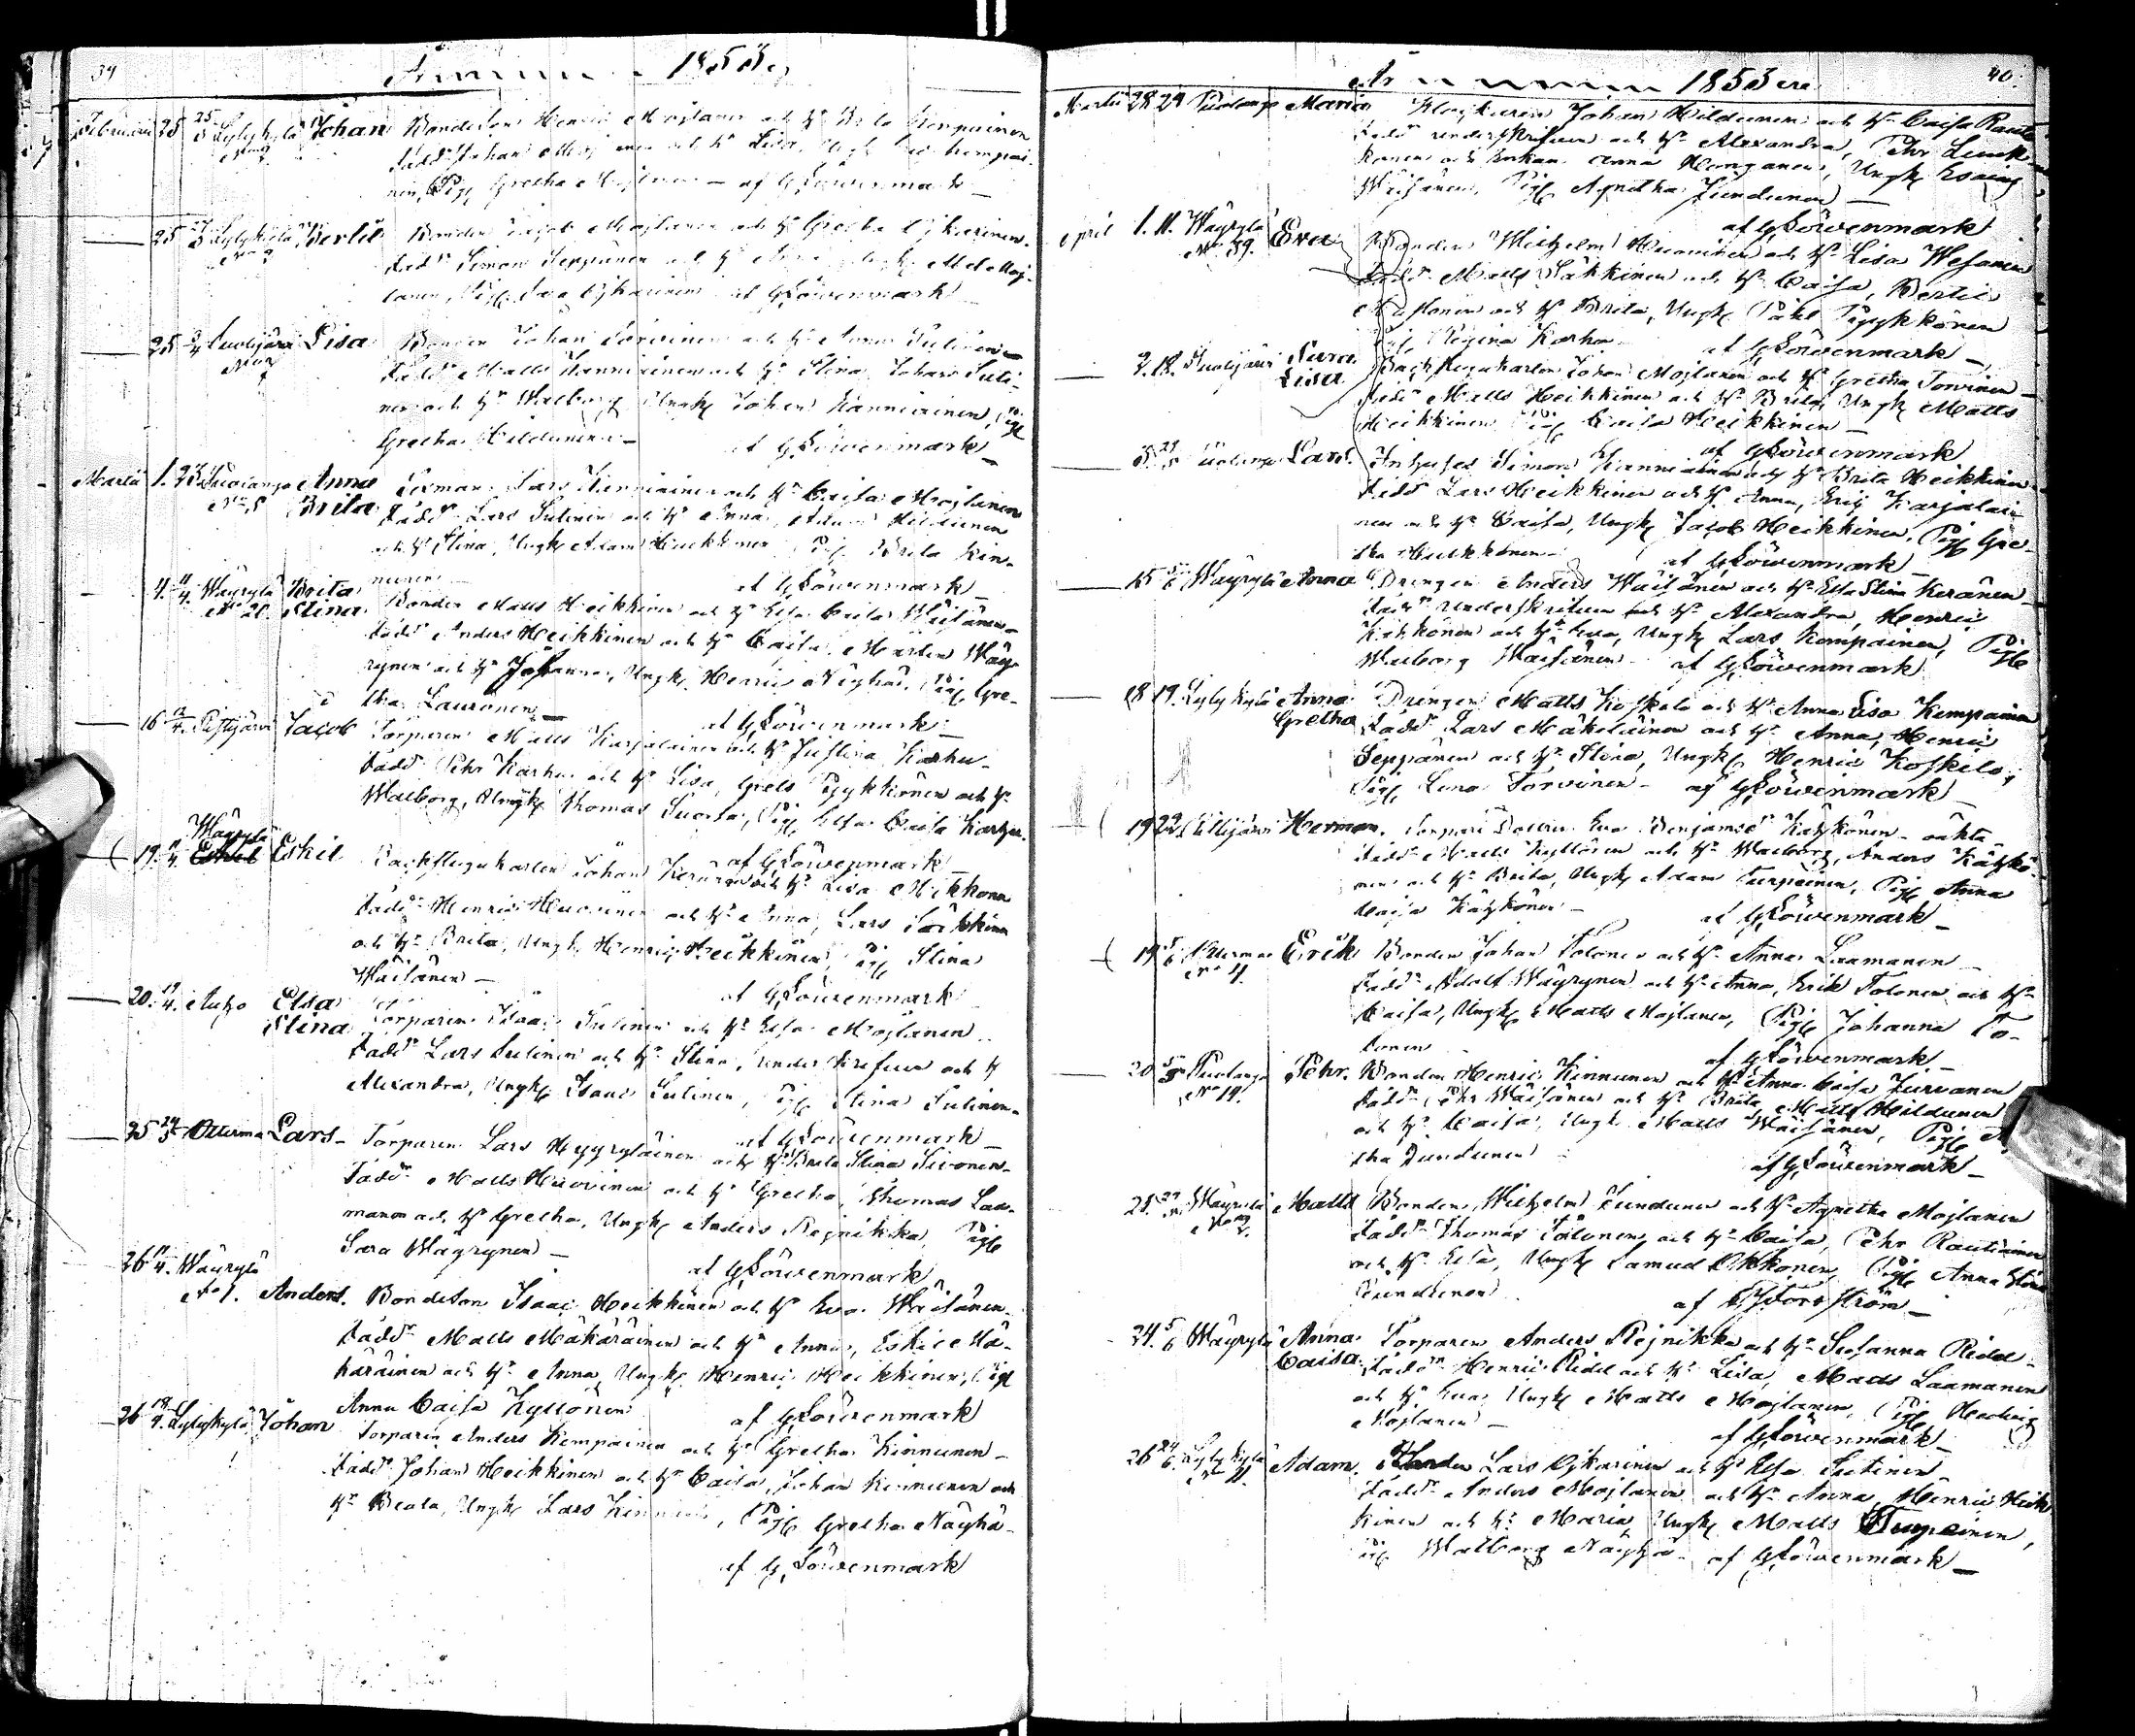 39
Annum 1853
Februarii 25 25/3 Lylykylä Johan Bondeson Henric Mojlanen och h: Brita Kempainen
Fadd: Johan Mojlanen och h: Lisa, Ungk Kempai-
nen, Pig Gretha Mojlanen — af G Löwenmark —
25 Lylykylä Bertil Bonden Mojlanen och h: Gretha Ojkarinen
Fadd: Simon Seppänen och h: Moj-
lanen, Pig Ojkarinen af G Löwenmark
25 Suolijärvi Lisa Bonden Johan Torvinen och h: Anna Sutinen
Fadd: Matts Kanniainen och h: Stina, Johan Suti-
nen och h: Walborg, Ungk Johan Kanniainen, Pig
Gretha Hildunen — af G Löwenmark —
Martii 1. 23 Puolango Anna Lars Kanniainen och h: Caisa Mojlanen
No 5 Brita Fadd: Lars Sutinen och h: Anna, Adam Hildunen
och h: Stina, Ungk Adam Heikkinen Pig Brita Kin-
nunen af G Löwenmark —
4. 11/4. Wäyrylä Brita
No 20. Stina Bonden Matts Heikkinen och h: Elsa Brita Wäisänen
Fadd: Anders Heikkinen och h: Caisa, Mårten Wäy-
rynen och h: Johanna, Ungk Henric Näyhä, Pig Gre-
tha Lauronen — af G Löwenmark —
16 12/4. Pistijärvi Jacob Torparen Matts Karjalainen och h: Justina Karhu-
Fadd: Pehr Karhu och h: Lisa, Grels Pyykkönen och h:
Walborg, Ungk Thomas Suorsa, Pig Elsa Caisa Karhu.
Wäyrylä
19. 11/4. Eskil Eskil Backstugukarlen Johan Keränen och h: Lisa Mikkonen
af G Löwenmark
Fadd: Henric Huovinen och h: Anna, Lars Säkkinen
och h: Brita, Ungk Henric Heikkinen, Pig Stina
Wäisänen — af G Löwenmark
20. 19/4. Auho Elsa
Stina Torparen Isaac Sutinen och h: Elsa Mojlanen
Fadd: Lars Sutinen och h: Stina, Underskrefven och h
Alexandra, Ungk Isaac Sutinen, Pig Stina Sutinen.
af G Löwenmark —
25 24/3 Otterma Lars- Torparen Lars Hyyryläinen och h: Brita Stina Sivonen-
Fadd: Matts Huovinen och h: Gretha, Thomas Laa-
manen och h: Gretha, Ungk Anders Rejnikka, Pig
Sara Wäyrynen — af G Löwenmark
26 11/4. Wäyrylä
No 1. Anders. Bondeson Isaac Heikkinen och h: Eva Wäisänen-
Fadd: Matts Mäkäräinen och h: Anna, Eskil Mä-
käräinen och h: Anna, Ungk Henric Heikkinen, Pig
Anna Caisa Kyllönen af G Löwenmark
26 18/4. Lylykylä Johan Torparen Anders Kempainen och h: Gretha Kinnunen —
Fadd: Johan Heikkinen och h: Caisa, Johan Kinnunen och
h: Beata, Ungk Lars Kinnunen, Pig Gretha Näyhä-
af G Löwenmark
40.
Annum 1853
Martii 28 29 Puolango Maria Johan Hildunen och h: Caisa Rauta
Fadd: underskrifven och h: Alexandra, Pehr Leink-
konen och Enkan Anna Honganen, Ungk Esaias
Wäisänen, Pig Agnetha Jundunen —
af G Löwenmark
April 1. 11. Wäyrylä Eva
No 39. Bonden Wilhelm Huovinen och h: Lisa Wesanen
Fadd: Matts Säkkinen och h: Caisa, Bertil
och h: Brita, Ungk Påhl Pyykkönen
Pig Regina Karhu — af G Löwenmark —
2. 12. Suolijärvi Sara
Lisa Backstugukarlen Johan Mojlanen och h: Gretha Torvinen —
Fadd: Matts Heikkinen och h: Brita, Ungk Matts
Heikkinen Pig Caisa Heikkinen —
af G Löwenmark
Puolango Lars. Inhyses Simon Kanniainen och h: Brita Heikkinen
Fadd: Lars Heikkinen och h: Anna, Eric Karjalai-
nen och h: Caisa, Ungk Jacob Heikkinen, Pig Gre-
tha Heikkinen — af G Löwenmark
15 Wäyrylä Anna Drengen Anders Wäisänen och h: Elsa Stina Keränen —
Fadd: Underskrifven och h: Alexandra, Henric
Kähkönen och h: Eva, Ungk Lars Kempainen, Pig
Walborg Wäisänen — af G Löwenmark
18 19. Lylykylä Anna
Gretha Drengen Matts Koskelo och h: Anna Lisa Kempainen
Fadd: Lars Mäkeläinen och h: Anna, Henric
Seppänen och h: Stina, Ungk Henric Koskelo,
Pig Lena Torvinen — af G Löwenmark
19 22/ Kilijärvi Herman. Torpare Dottren Eva Benjamsd: Kähkönen — oäkta
Fadd: Matts Kyllönen och h: Walborg, Anders Kähkö-
nen och h: Brita, Ungk Adam Turpeinen, Pig Anna
Caisa Kähkönen — af G Löwenmark —
19 5/6 Otterma Erik
No 4. Bonden Johan Tolonen och h: Anna Laamanen —
Fadd: Adolf Wäyrynen och h: Anna, Erik Tolonen och h:
Caisa, Ungk Matts Mojlanen, Pig Johanna To-
lonen af G Löwenmark —
20 Puolango Pehr.
No 19. Bonden Henric Kinnunen och h: Anna Caisa Jurvanen
Fadd: Pehr Wäisänen och h: Brita, Matts Hildunen
och h: Caisa, Ungk Matts Wäisänen, Pig
tha Jundunen af G Löwenmark —
21. Wäyrylä Matts Bonden Wilhelm Jundunen och h: Agnetha Mojlanen
Fadd: Thomas Tolonen och h: Caisa, Pehr Rautiainen
och h: Elsa, Ungk Samuel Okkonen, Pig Anna Stina
Jundunen af Forsström —
24. 5/6 Wäyrylä Anna
Caisa Torparen Anders Rejnikka och h: Susanna Ridd —
Fadd: Henric Ridd och h: Lisa, Matts Laamanen
och h: Eva, Ungk Matts Mojlanen, Pig Hedvig
Mojlanen — af G Löwenmark —
26 24/6. Lylykylä Adam. Bonden Lars Ojkarinen och h: Elsa Sutinen
Fadd: Anders Mojlanen och h: Anna, Henric Heik-
kinen och h: Maria, Ungk Matts Turpeinen,
Pig Walborg Näyhä — af G Löwenmark —